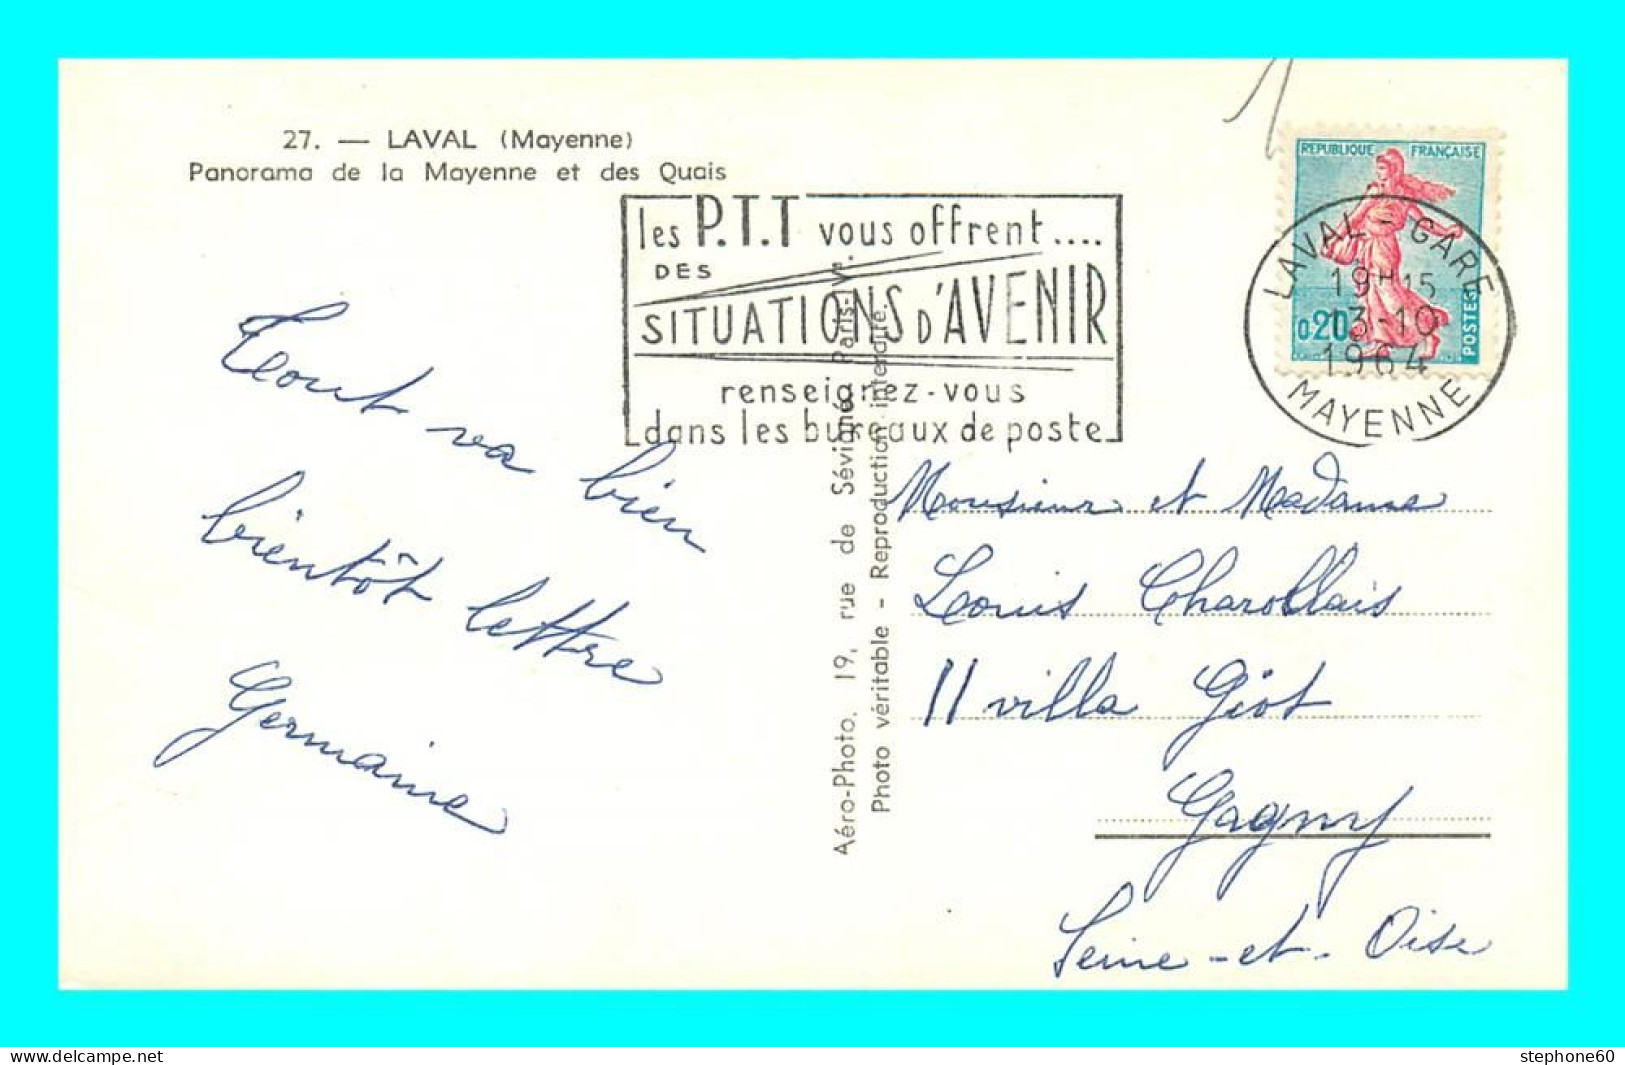 27. — LAVAL (Mayenne)
Panorama de la Mayenne et des Quais
les P.T.T vous offrent....
DES
SITUATIONS D'AVENIR
renseignez-vous
dans les bureaux de poste
REPUBLIQUE FRANÇAISE
0.20
POSTES
LAVAL - GARE
19H15
13-10
1964
MAYENNE
Tout va bien
bientôt lettre
Germaine
Aéro-Photo, 19, rue de Sévigné, Paris-IVe.
Photo véritable - Reproduction interdite.
Monsieur et Madame
Louis Charollais
11 villa Giot
Gagny
Seine-et-Oise
www.delcampe.net
stephone60